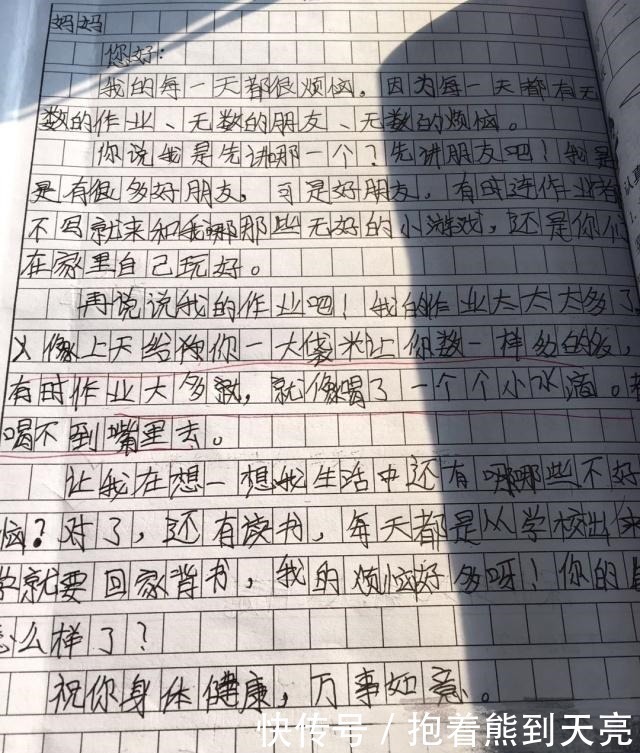 妈妈
你好:
我的每一天都很烦恼。因为每一天都有无
数的作业、无数的朋友、无数的烦恼。
你说我是先讲哪一个?先讲朋友吧!我是
是有很多好朋友,可是好朋友,有时连作业者
不写就来和我哪那些无好的小游戏,还是你们
在家里自己玩好。
再说说我的作业吧!我的作业太太大多了
像上天给你一大袋米让你数一样多的多,
有时作业大多就,就像喝了一个个小水滴。都
喝不到嘴里去。
让我在想一想我生活中还有哪哪些不好
恼?对了,还有读书,每天都是从学校出
学就要回家背书,我的烦恼好多呀!你的
怎么样了?
祝你身体健康,万事如意。
快传号/抱着熊到天亮